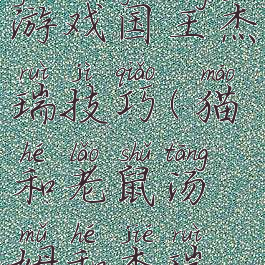 游戏国王杰
ruì jì qiǎo māo
瑞技巧(猫
hé lǎo shǔ tāng
和老鼠汤
mǔ hé jié ruì
姆和杰瑞